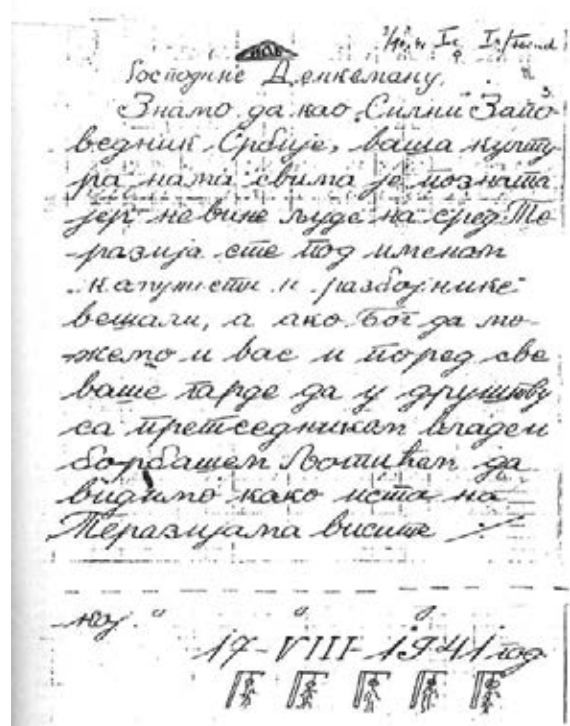 Господине Денкеману,
Знамо да као „Силни Запо
ведник Србије, ваша култу
ра нама свима је позната
јер невине људе на сред Те
-разија сте под именом
и разбојнике
вешали, а ако Бог да мо-
-жемо и вас и поред све
ваше гарде да у друштву
са претседником владе и
Љотићем да
видимо како иста на
Теразијама висите
17-VIII-1941 год